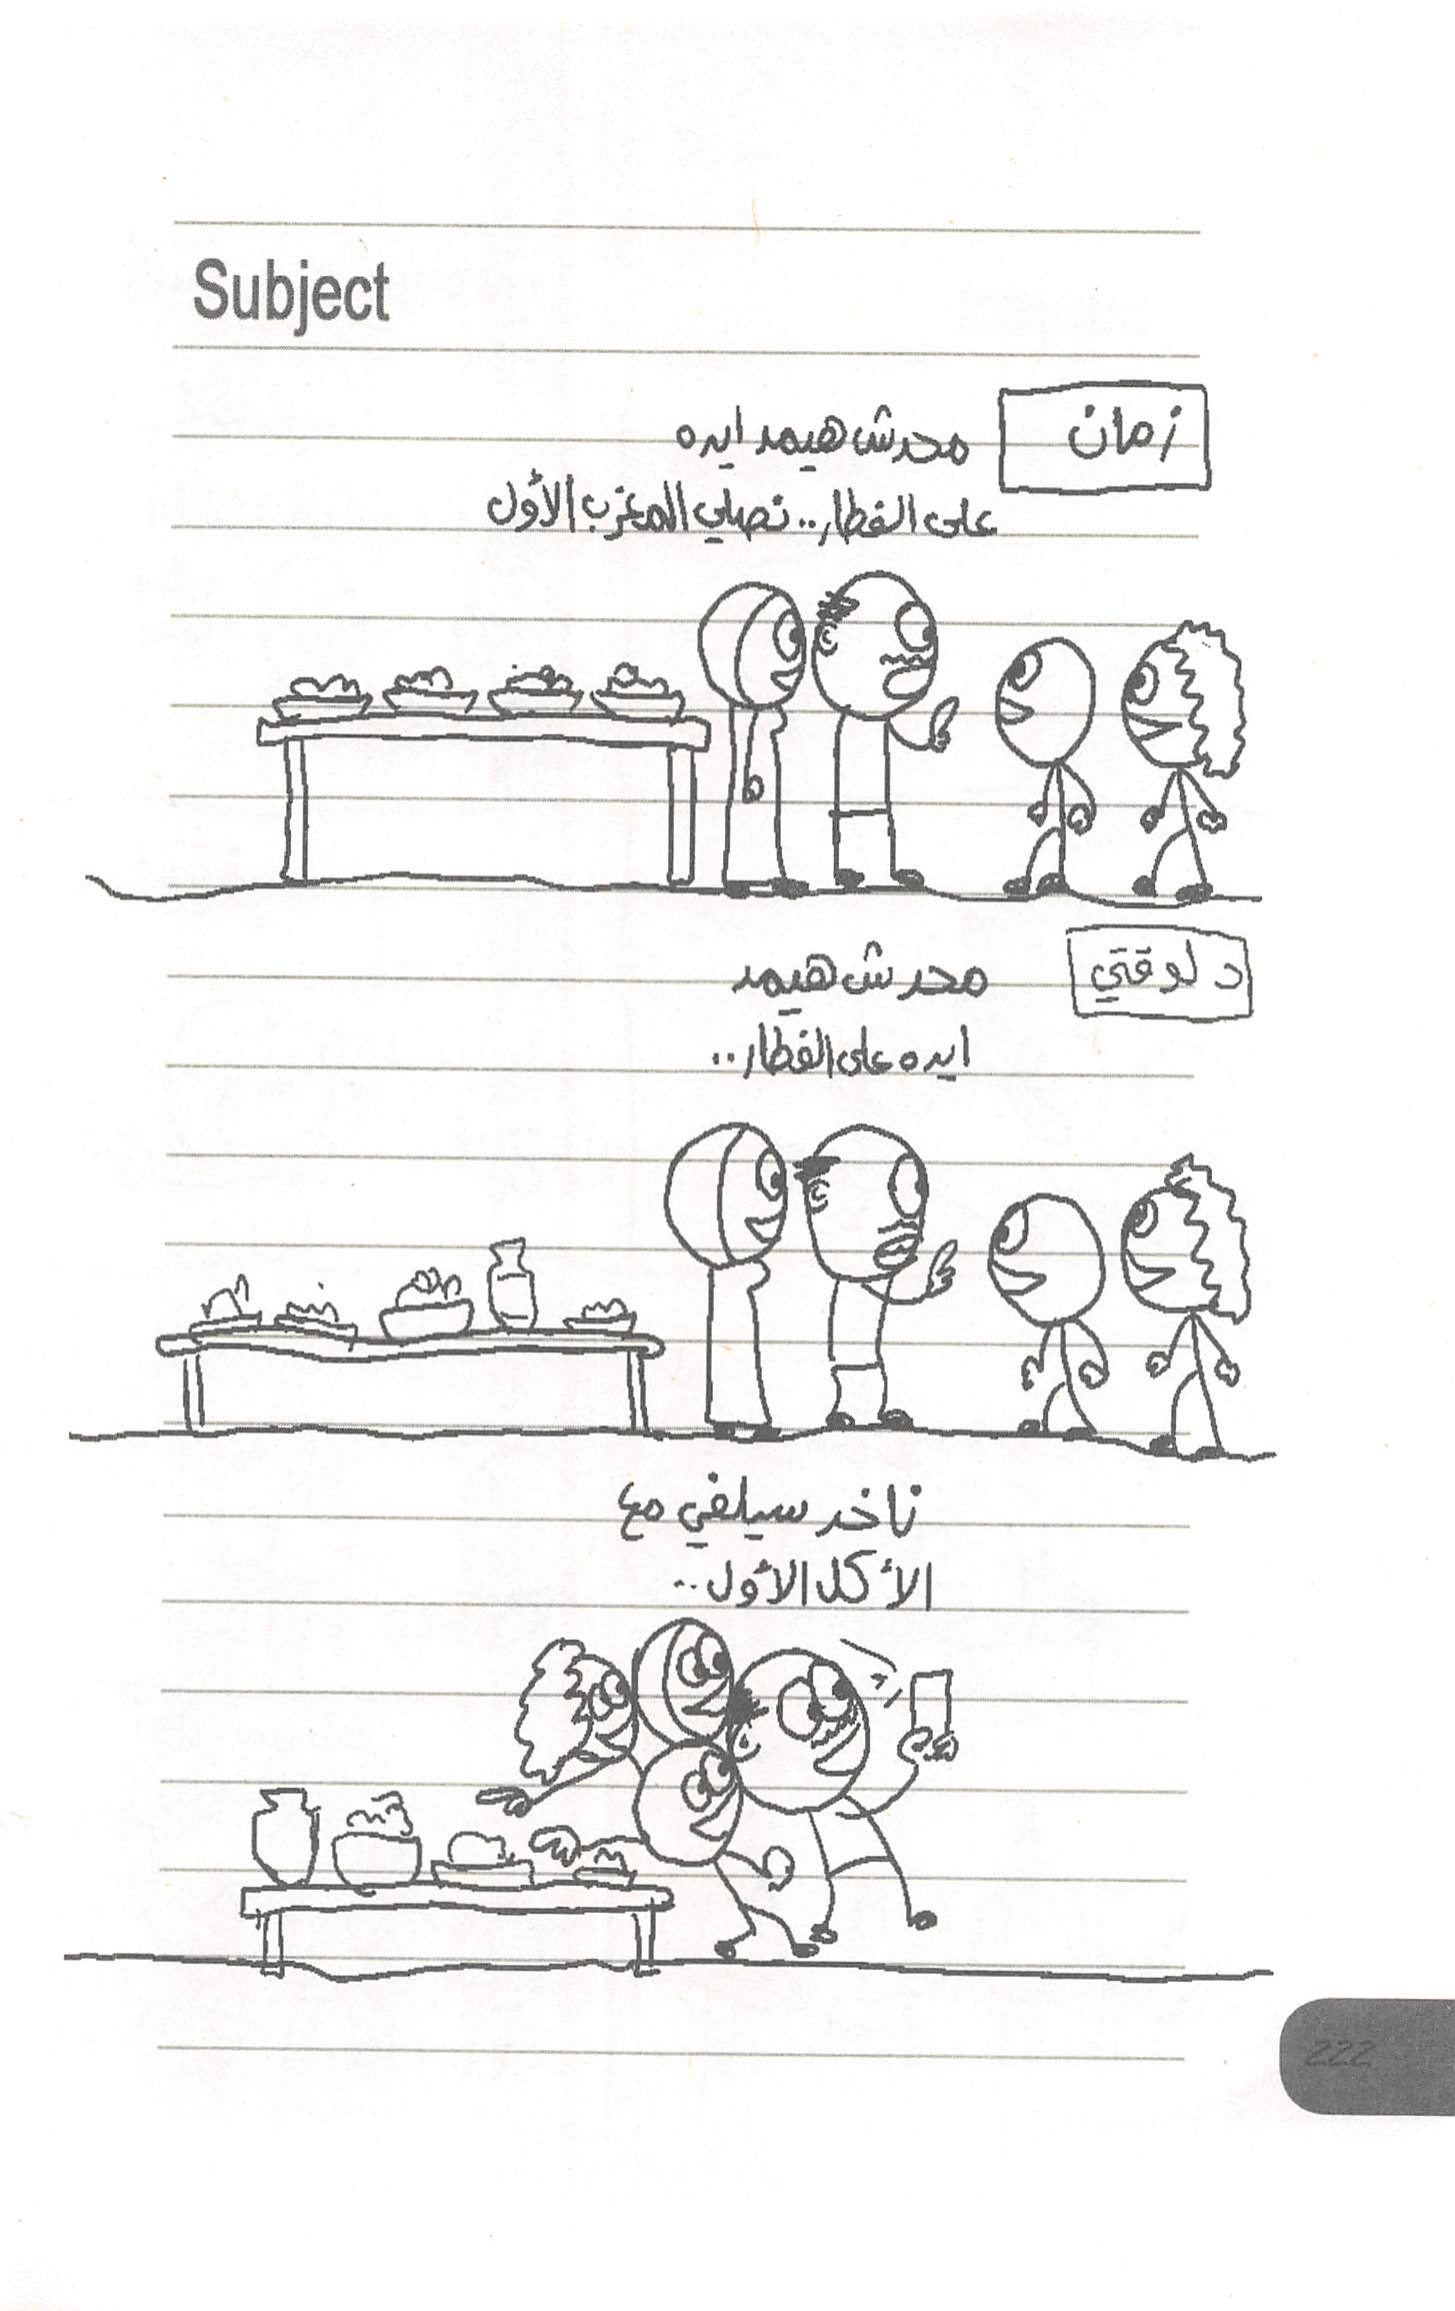 Subject
زمان
محدش هيمد ايده
على الفطار.. نصلي المغرب الأول
دلوقتي
محدش هيمد
ايده على الفطار..
ناخد سيلفي مع
الأكل الأول..
222